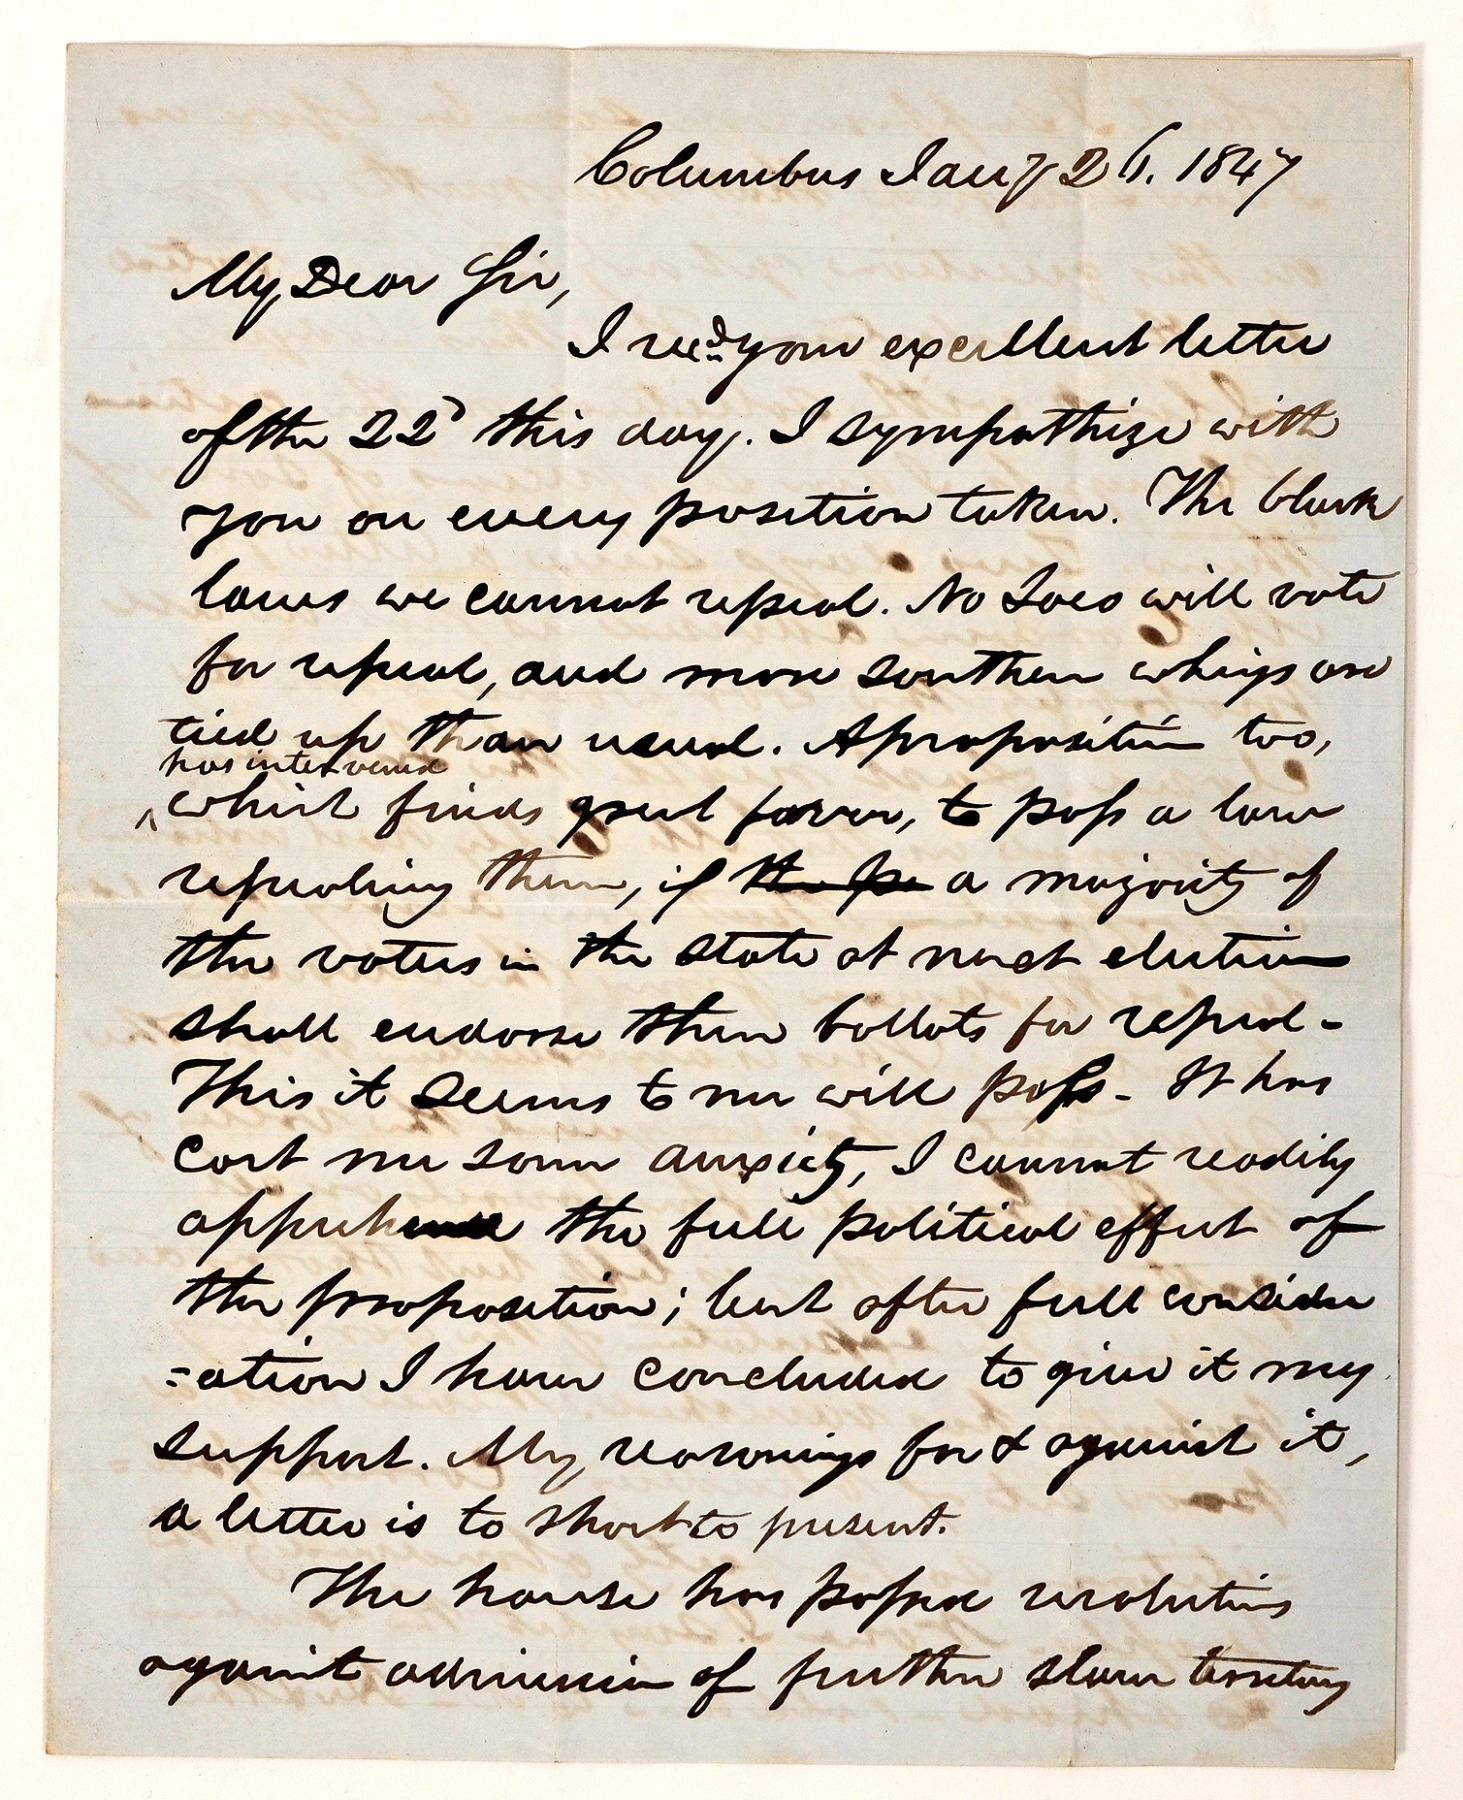 Columbus Jany 26. 1847
My Dear Sir,
I recd your excellent letter
of the 22d this day. I sympathize with
you on every position taken. The black
laws we cannot repeal. No Locos will vote
for repeal, and more southern whigs are
tied up than usual. A proposition too,
has intervened
^ which finds great favor, to pass a law
repealing them, if the pe a majority of
the voters in the state at next election
shall endorse their ballots for repeal -
This it seems to me will pass - It has
cost me some anxiety, I cannot readily
apprehend the full political effect of
the proposition; but after full consider
=ation I have concluded to give it my
support. My reasonings for & against it,
a letter is to short to present.
The house has passed resolutions
against admission of further slave territory